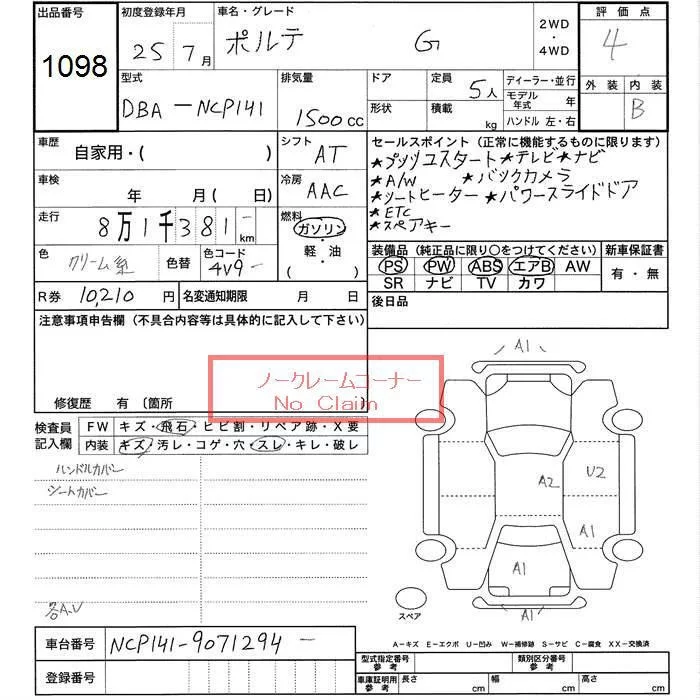 出品番号
1098
初度登録年月
25 7月
車名・グレード
ポルテ G
2WD
・
4WD
評価点
4
外装 内装
B
型式
DBA-NCP141
排気量
1500cc
ドア
形状
定員 5人
積載 kg
ディーラー・並行
モデル年式 年
ハンドル 左・右
車歴 自家用・( )
シフト AT
車検 年 月(日)
冷房 AAC
走行 8万1千381- km
燃料
ガソリン
・
軽・油
( )
色 クリーム系
色替
色コード
4V9-
R券 10,210 円
名変通知期限 月 日
セールスポイント(正常に機能するものに限ります)
★プッシュスタート★テレビ★ナビ
★A/W ★バックカメラ
★シートヒーター★パワースライドドア
★ETC
★スペアキー
装備品(純正品に限り〇をつけてください)
PS PW ABS エアB AW
SR ナビ TV カワ
新車保証書
有・無
後日品
注意事項申告欄(不具合内容等は具体的に記入して下さい)
ノークレームコーナー
No Claim
修復歴 有〔箇所
検査員
記入欄
FW キズ・飛石・ヒビ割・リペア跡・X要
内装 キズ・汚レ・コゲ・穴・スレ・キレ・破レ
ハンドルカバー
シートカバー
各A.U
A1
A2
U2
A1
A1
A1
スペア
A-キズ E-エクボ U-凹み W-補修跡 S-サビ C-腐食 XX-交換済
車台番号 NCP141-9071294-
登録番号
型式指定番号
参考
類別区分番号
参考
車庫証明用
参考
長さ cm 幅 cm 高さ cm